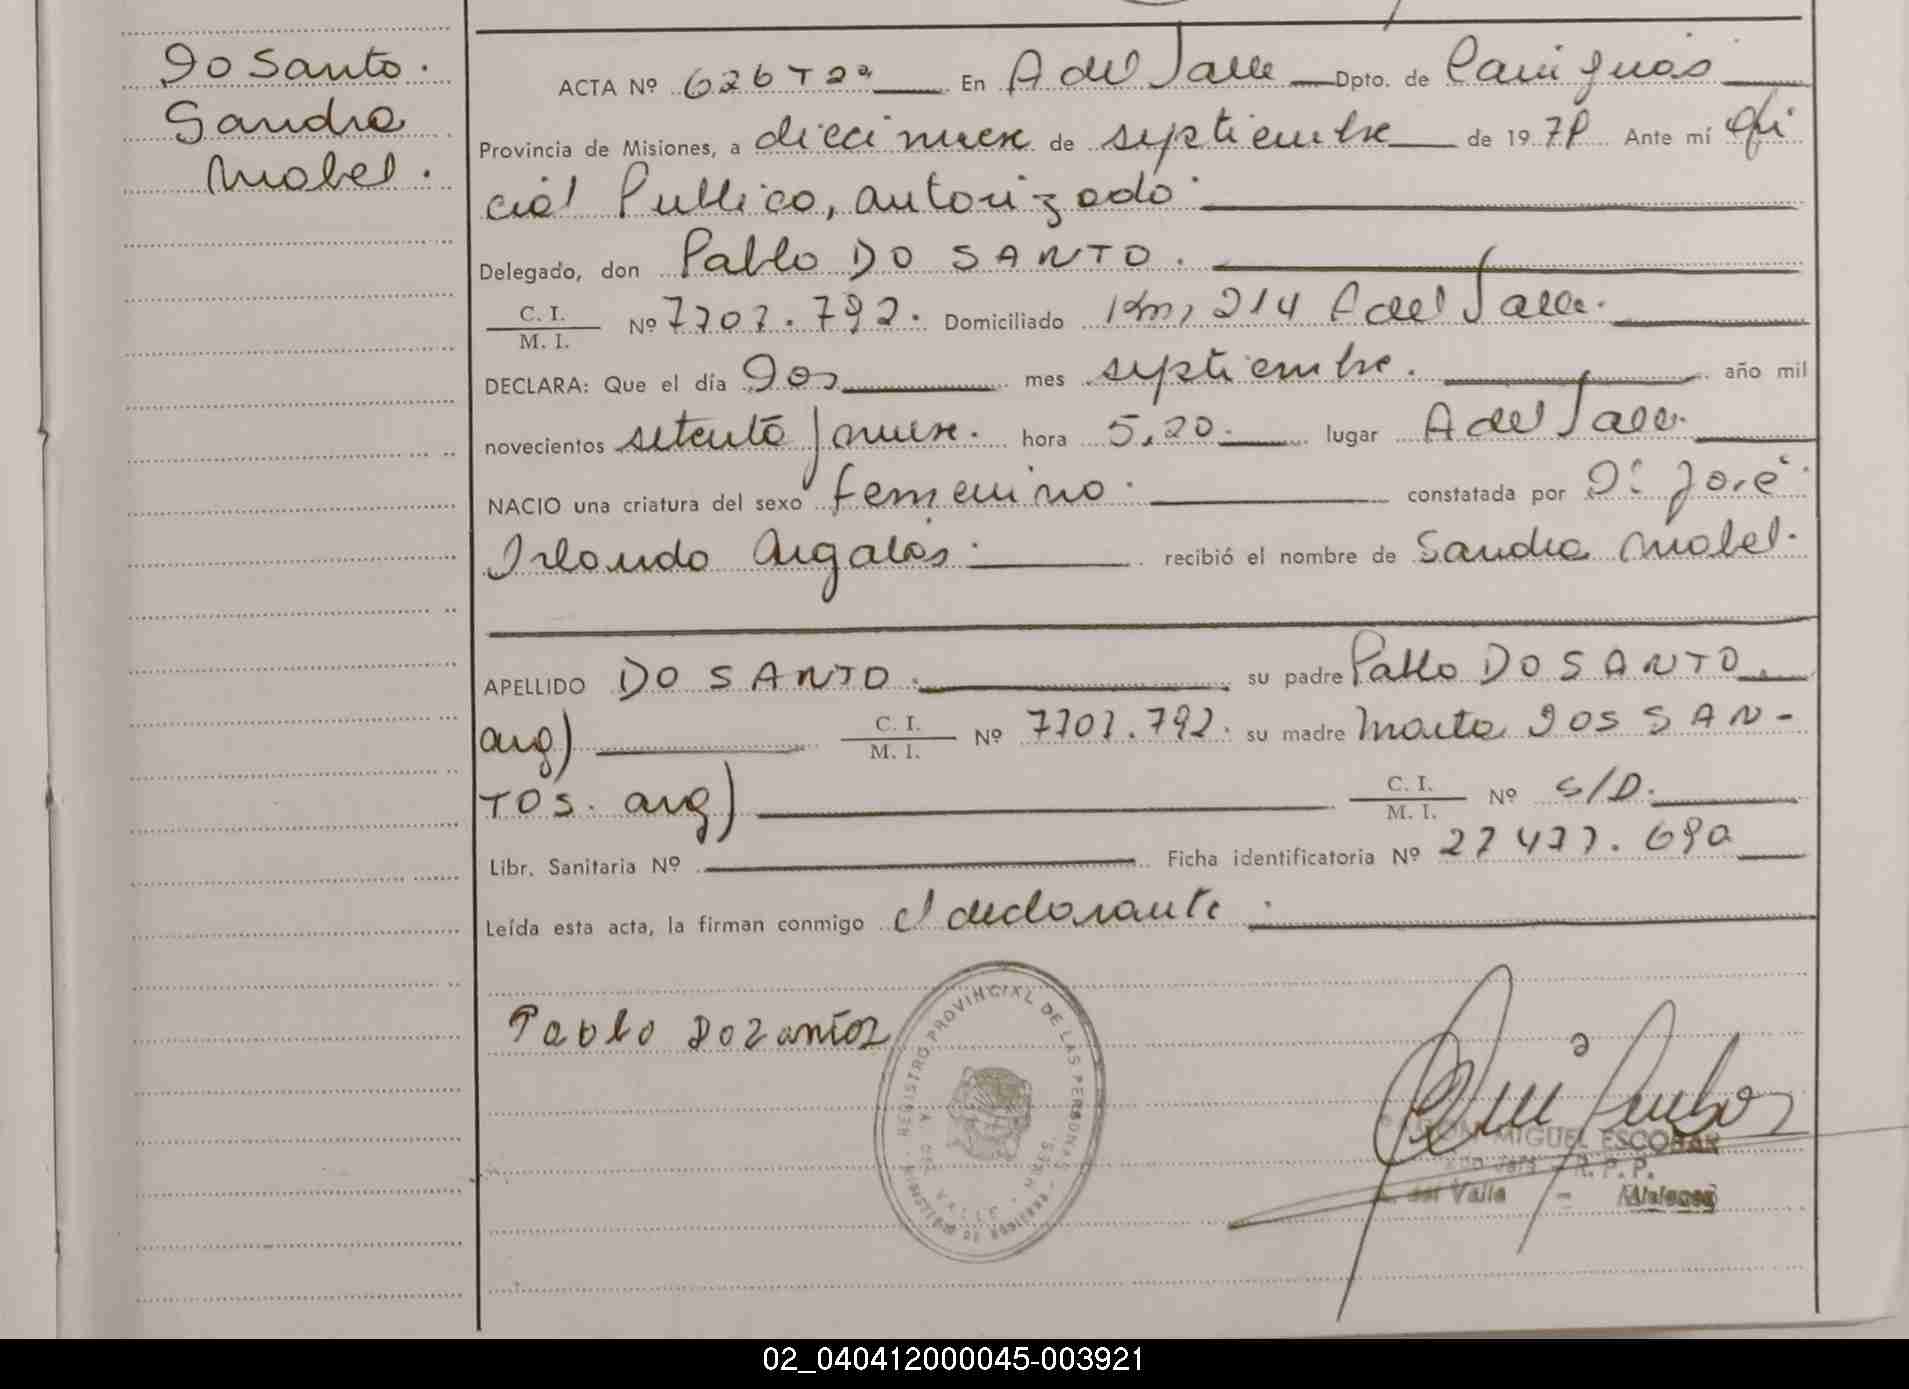 Do Santo.
Sandra
Mabel.
ACTA Nº 626 Tº 2º En A del Valle Dpto. de Cainguás
Provincia de Misiones, a diecinueve de septiembre de 1979 Ante mí Ofi
cial Publico, autorizado.
Delegado, don Pablo DO SANTO.
C. I.
M. I.
Nº 7707.792. Domiciliado Km, 214 A del Valle.
DECLARA: Que el día Dos mes septiembre. año mil
novecientos setenta y nueve. hora 5,20. lugar A del Valle.
NACIO una criatura del sexo femenino. constatada por Dr José
Orlando Argalas. recibió el nombre de Sandra Mabel.
APELLIDO DO SANTO. su padre Pablo DO SANTO.
arg) C. I.
M. I.
Nº 7707.792. su madre Marta DOS SAN-
TOS. arg) C. I.
M. I.
Nº S/D.
Libr. Sanitaria Nº Ficha identificatoria Nº 27477.690
Leída esta acta, la firman conmigo el declarante.
Pablo Dozantoz
REGISTRO PROVINCIAL DE LAS PERSONAS
A DEL VALLE
MIGUEL ESCOBAR
R. P. P.
A. del Valle - Misiones
02_040412000045-003921